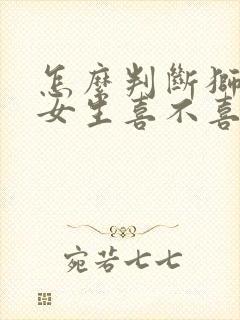 怎麼判斷獅
女生喜不喜
宛若七七